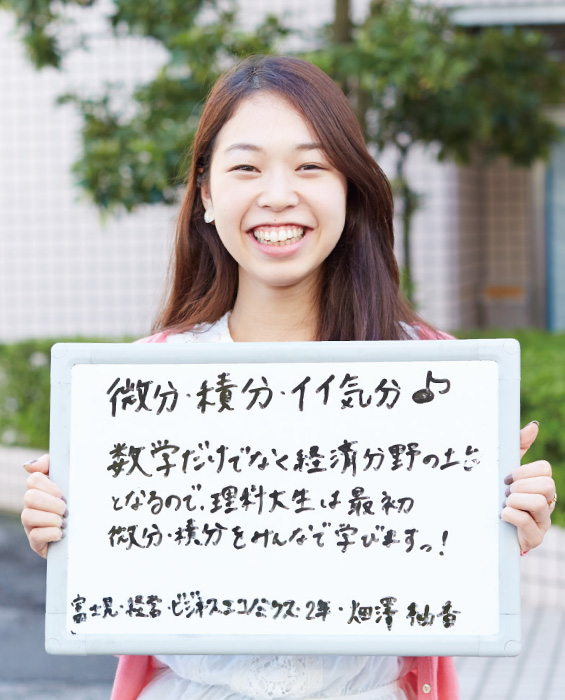 微分・積分・イイ気分♪
数学だけでなく経済分野の土台
となるので、理科大生は最初
微分・積分をみんなで学びますっ!
富士見・経営・ビジネスエコノミクス・2年・畑澤 柚香